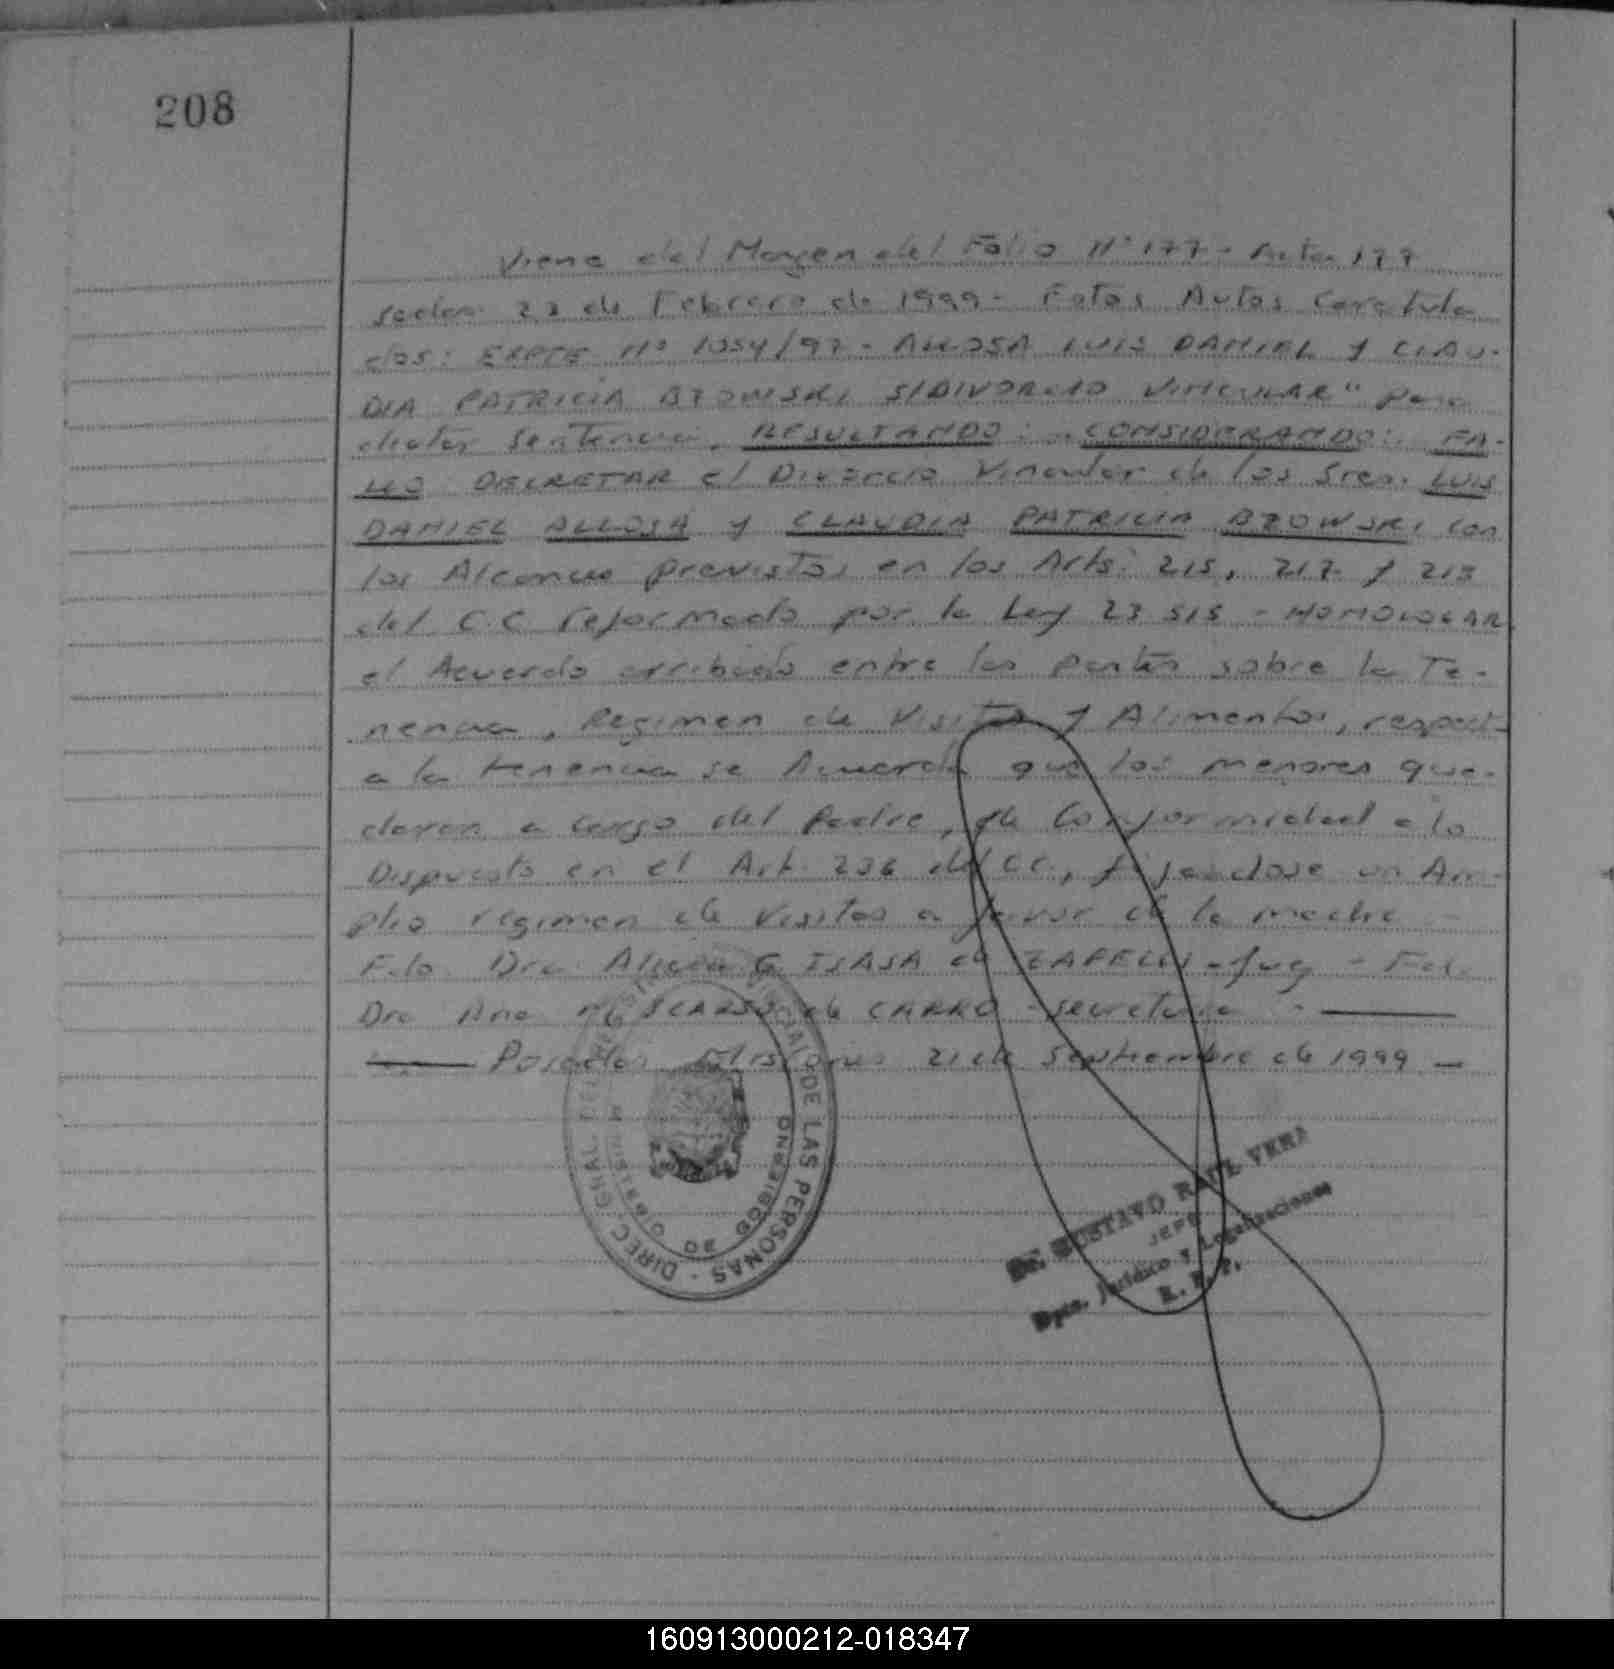 208
Viene del Margen del Folio Nº 177 - Acta 177
sadas 23 de Febrero de 1999 - Estos Autos Caratula
dos: EXPTE Nº 1054/97 - ALLOSA LUIS DANIEL y CLAU-
DIA PATRICIA BZOWSKI S/DIVORCIO VINCULAR" para
dictar Sentencia. RESULTANDO: CONSIDERANDO: FA-
LLO DECRETAR el Divorcio Vincular de los Sres. LUIS
DANIEL ALLOSA y CLAUDIA PATRICIA BZOWSKI con
los Alcances previstos en los Arts: 215, 217 y 218
del C.C reformado por la Ley 23 515 - HOMOLOGAR
el Acuerdo arribado entre las partes sobre la Te-
nencia, Regimen de Visitas y Alimentos, respect
a la tenencia se Acuerda que los menores que-
daran a cargo del Padre, de Conformidad a lo
Dispuesto en el Art. 236 del CC, fijandose un Am-
plio regimen de Visitas a favor de la madre -
Fdo. Dra. Alicia G ISASA de ZAFFELLI - Juez - Fdo.
Dra Ana SCARSO de CARRO - Secretaria -
Posadas Misiones 21 de Septiembre de 1999 -
DIREC. GRAL. DEL REGISTRO PROVINCIAL DE LAS PERSONAS
MINISTERIO DE GOBIERNO
Dr. GUSTAVO RAUL VERA
JEFE
Dpto. Jurídico y Legalizaciones
R. P. P.
160913000212-018347